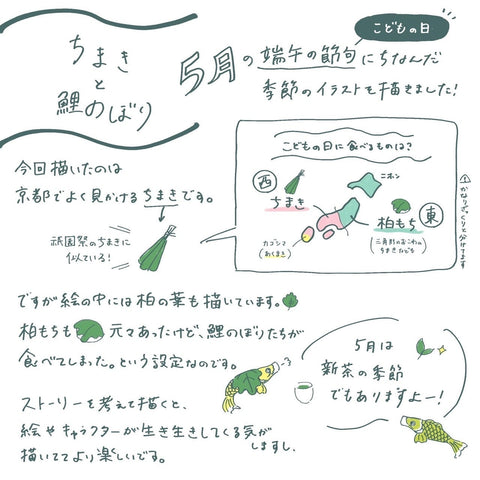 ちまき
と
鯉のぼり
こどもの日
5月の端午の節句にちなんだ
季節のイラストを描きました!
今回描いたのは
京都でよく見かけるちまきです。
祇園祭のちまきに
似ている!
こどもの日に食べるものは?
西
ちまき
ニホン
柏もち
東
カゴシマ
(あくまき)
(三角形のおこわの
ちまきなども)
かなりざっくりと分けてます
ですが絵の中には柏の葉も描いています。
柏もちも 元々あったけど、鯉のぼりたちが
食べてしまった。という設定なのです。
5月は
新茶の季節
でもありますよー!
ストーリーを考えて描くと、
絵やキャラクターが生き生きしてくる気が
しますし、
描いててより楽しいです。